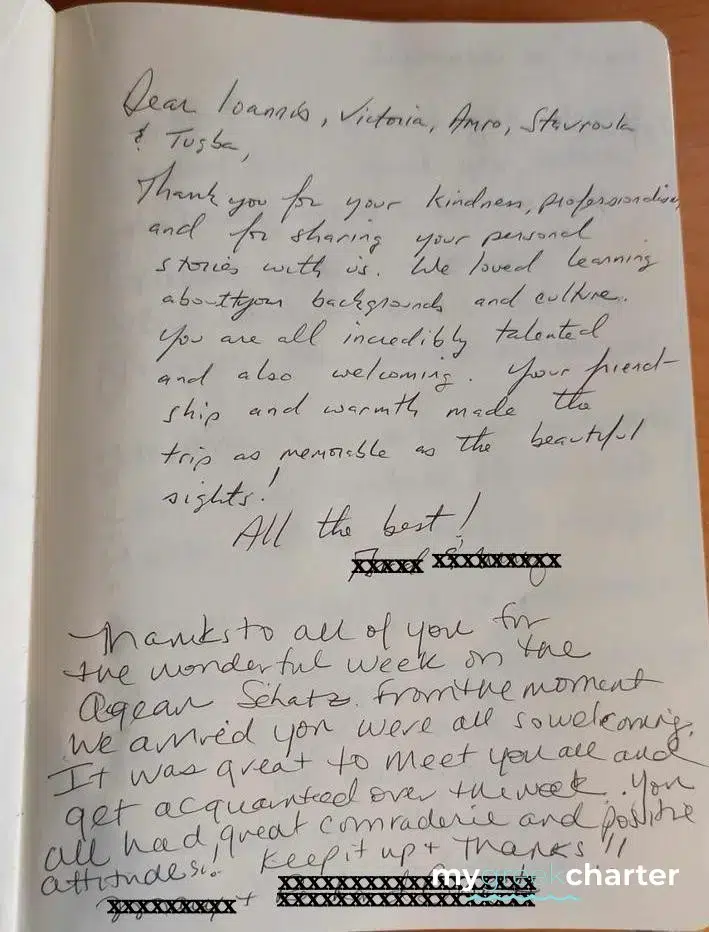 Dear Ioannis, Victoria, Amro, Stavroula
& Tugba,
Thank you for your kindness, professionalism,
and for sharing your personal
stories with us. We loved learning
about your backgrounds and culture.
You are all incredibly talented
and also welcoming. Your friend-
ship and warmth made the
trip as memorable as the beautiful
sights!
All the best!
Thanks to all of you for
the wonderful week on the
Aegean Schatz. From the moment
we arrived you were all so welcoming.
It was great to meet you all and
get acquainted over the week. You
all had great comraderie and positive
attitudes!! Keep it up + Thanks !!
+
mygreekcharter